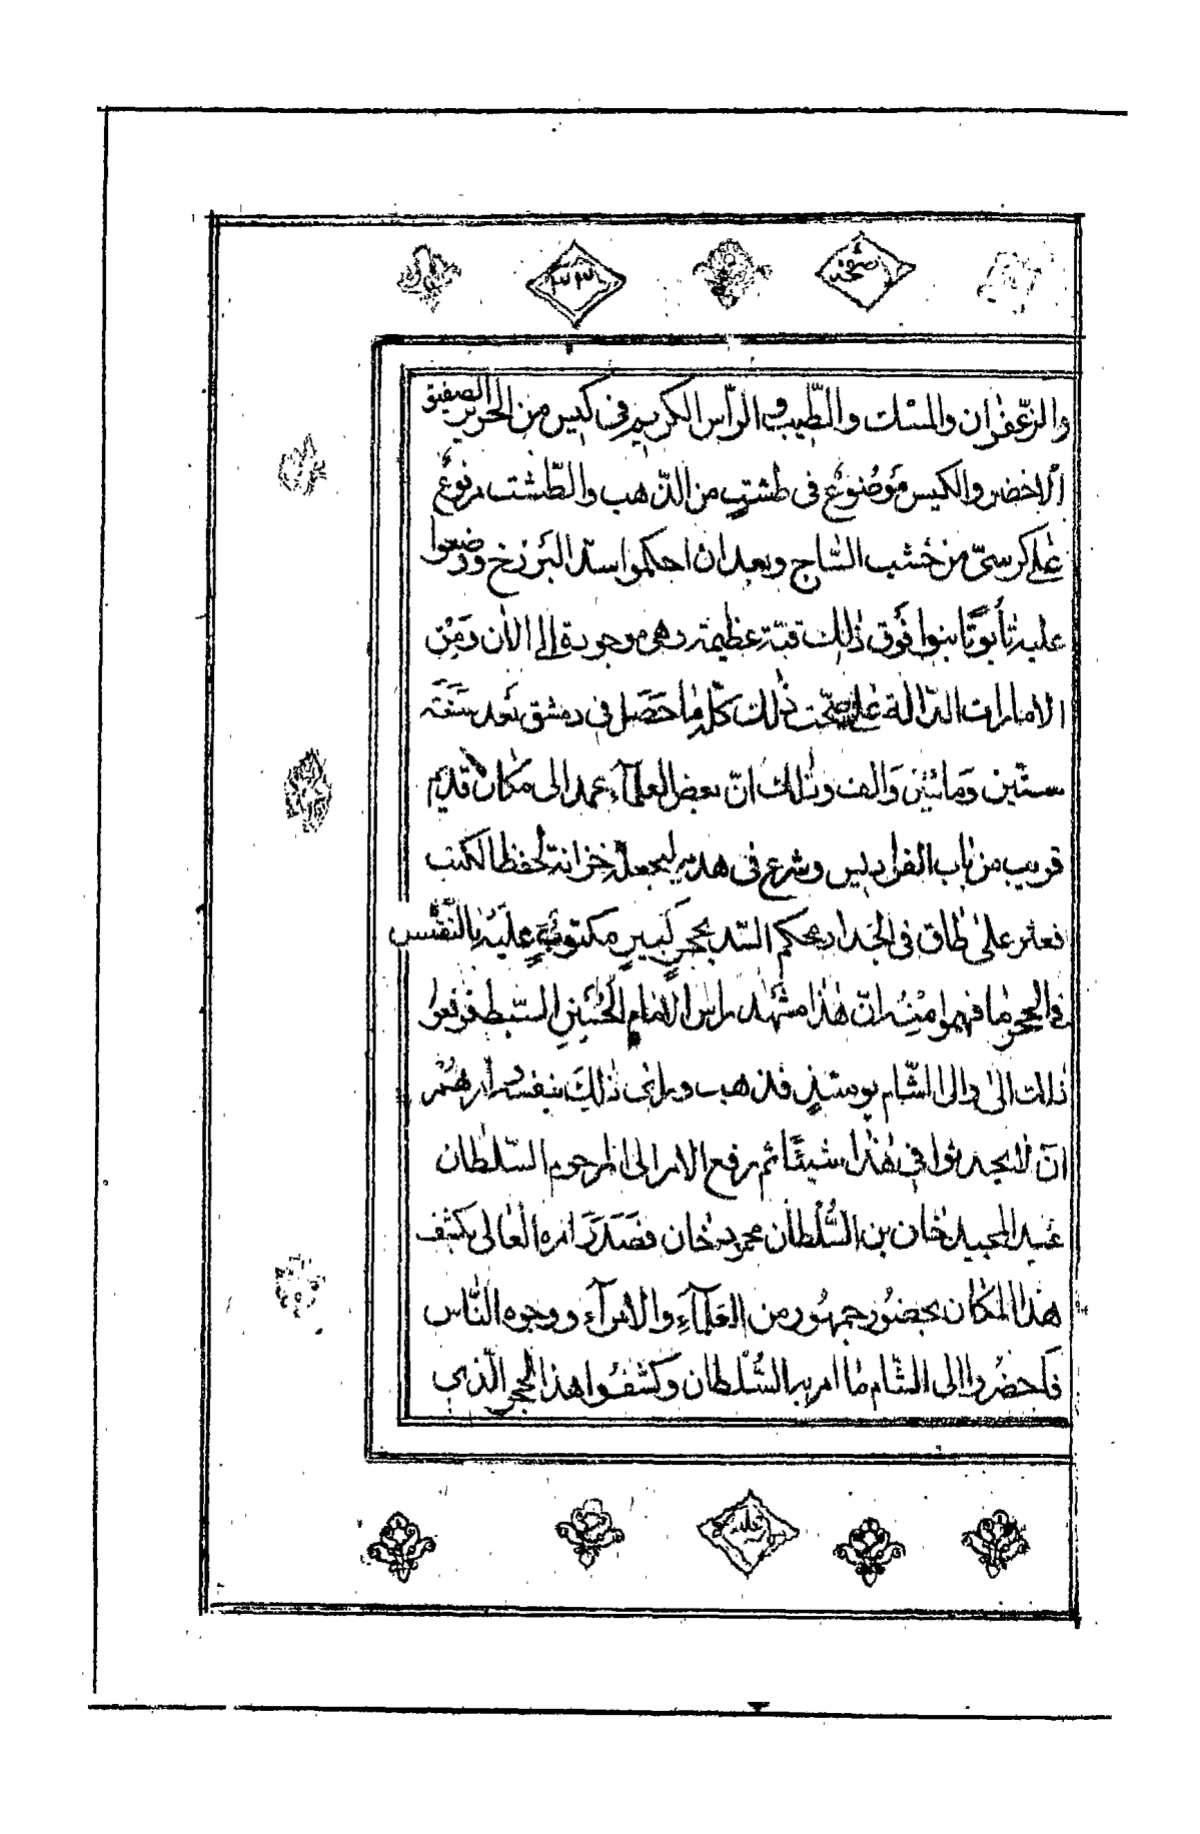 والزّعفران والمسك والطّيب والرّأس الكريم في كيس من الحرير الصفيق
الاخضر والكيس مَوضُوعٌ في طشتٍ من الذّهب والطّشت مرفوعٌ
عَلى كرسيّ من خشب السّاج وبعد ان احكموا سدّ البَرزخ ووضعوا
عليه تابُوتًا بنوا فَوق ذٰلك قبّة عظيمة وهي موجودة إلى الاٰن وَمِنْ
الامارات الدّالة عَلى صحّت ذٰلك كلّه مٰا حَصَل في دمشق بَعد سَنَة
ستّين وَمائتين وَالف وذٰلك انّ بعض العلمآء عمد الى مكان قديم
قريب من بٰاب الفراديس وشرع في هدمه ليجعله خزانة لحفظ الكتب
فعثر علىٰ طٰاق في الجدار محكم السّد بحجرٍ كَبيرٍ مكتوبٌ عليْه بالنّقش
في الحجر مٰا فهموا مِنْه انّ هٰذا مشهَد راس الامام الحُسَين السّبط فرفعوا
ذٰلك الىٰ والى الشّام يومئذٍ فذهب وراى ذٰلكَ بنفسه وأمرهُمْ
انَ لٰا يحدثوا في هٰذا شيئًا ثم رفع الامر الى المرحوم السّلطان
عبد المجيد خان بن السُّلطان محمود خٰان فصَدَرَ امره العٰالى بكشف
هٰذا المكان بحضُور جمهُور من العَلمآءِ والامرآء ووجوه النّاس
فَاحضرُوا الى الشّام مٰا امر به السُّلطان وكَشفُوا هذا الحجر الّذي